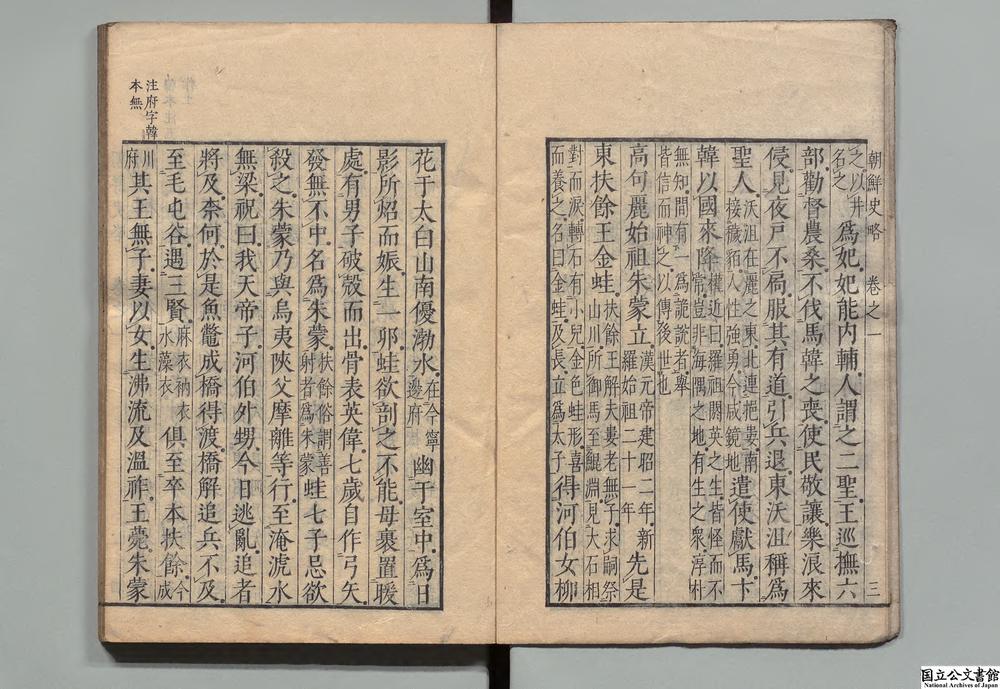 朝鮮史略　卷之一　三
之以井
名之
為妃妃能內輔人謂之二聖王巡撫六
部勸督農桑不伐馬韓之喪使民敬讓樂浪來
侵見夜戸不扃服其有道引兵退東沃沮稱爲
聖人
沃沮在麗之東北連挹婁南
接穢貊人性強勇今咸鏡地
遣使獻馬卞
韓以國來降
權近曰羅祖閼英之生皆怪而不
常豈非海隅之地有生之衆浮朴
無知間有一爲詭說者擧
皆信而神之以傳後世也
高句麗始祖朱蒙立
漢元帝建昭二年新
羅始祖二十一年
先是
東扶餘王金蛙
扶餘王解夫婁老無子求嗣祭
山川所御馬至鯤淵見大石相
對而淚轉石有小兒金色蛙形喜
而養之名曰金蛙及長立爲太子
得河伯女柳
花于太白山南優渤水
在今寧
邊府
幽于室中爲日
影所炤而娠生一卵蛙欲剖之不能母裹置暖
處有男子破殼而出骨表英偉七歲自作弓矢
發無不中名爲朱蒙
扶餘俗謂善
射者爲朱蒙
蛙七子忌欲
殺之朱蒙乃與烏夷陜父摩離等行至淹淲水
無梁祝曰我天帝子河伯外甥今日逃亂追者
將及柰何於是魚鼈成橋得渡橋解追兵不及
至毛屯谷遇三賢
麻衣衲衣
水藻衣
俱至卒本扶餘
今成
川府
其王無子妻以女生沸流及溫祚王薨朱蒙
注府字韓
本無
国立公文書館
National Archives of Japan